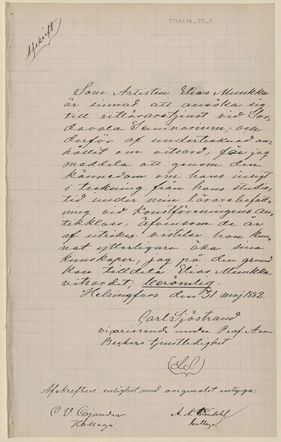 Afskrift
Som Artisten Elias Muukka
är sinnad att ansöka sig
till ritläraretjenst vid Sor-
davala Seminarium, och
derför af undertecknad an-
hållit om vitsord, får jag
meddela att genom den
kännedom om hans insigt
i teckning från hans studie-
tid under min lärarebefatt-
ning vid Konstföreningens An-
tikklass, äfvensom de
af utrikes vistelse har kun-
nat ytterligare öka sina
kunskaper, jag på den grund
kan tilldela Elias Muukka
vitsordet, berömlig.
Helsingfors den 31 maj 1882.
Carl Sjöstrand
vicarierande under Prof. A. von
Beckers tjenstledighet
(L.S.)
Afskriftens enlighet med originalet intyga:
C V
Kollega
A. A.